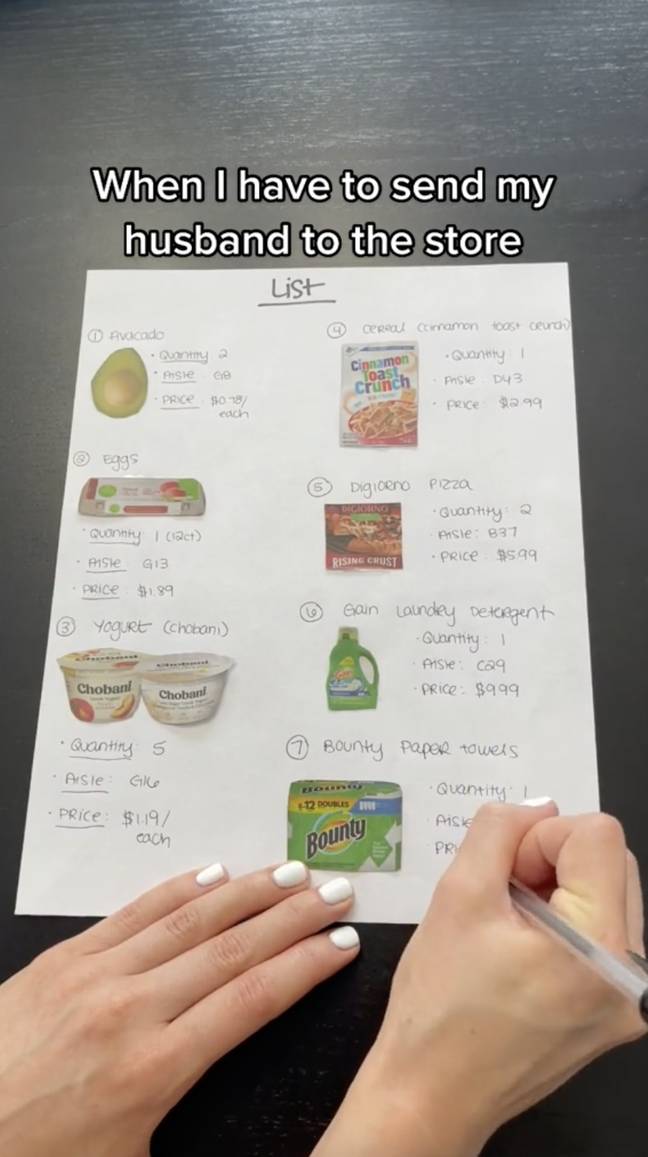 When I have to send my
husband to the store
List
① Avacado
• Quantity 2
• Aisle : G8
• PRICE : $0.78/
each
② Eggs
• Quantity : 1 (12ct)
• Aisle : G13
• PRICE : $1.89
③ YOGURT (Chobani)
Chobani
Chobani
• Quantity : 5
• Aisle : G16
• PRICE : $1.19/
each
④ CEREAL (cinnamon toast crunch)
Cinnamon
Toast
Crunch
• Quantity : 1
• Aisle : D43
• PRICE : $2.99
⑤ DIGIORNO PIZZA
DIGIORNO
RISING CRUST
• Quantity : 2
• Aisle : B37
• PRICE : $5.99
⑥ Gain Laundry Detergent
Gain
• Quantity : 1
• Aisle : C29
• PRICE : $9.99
⑦ Bounty Paper towels
Bounty
12 DOUBLES
Bounty
• Quantity : 1